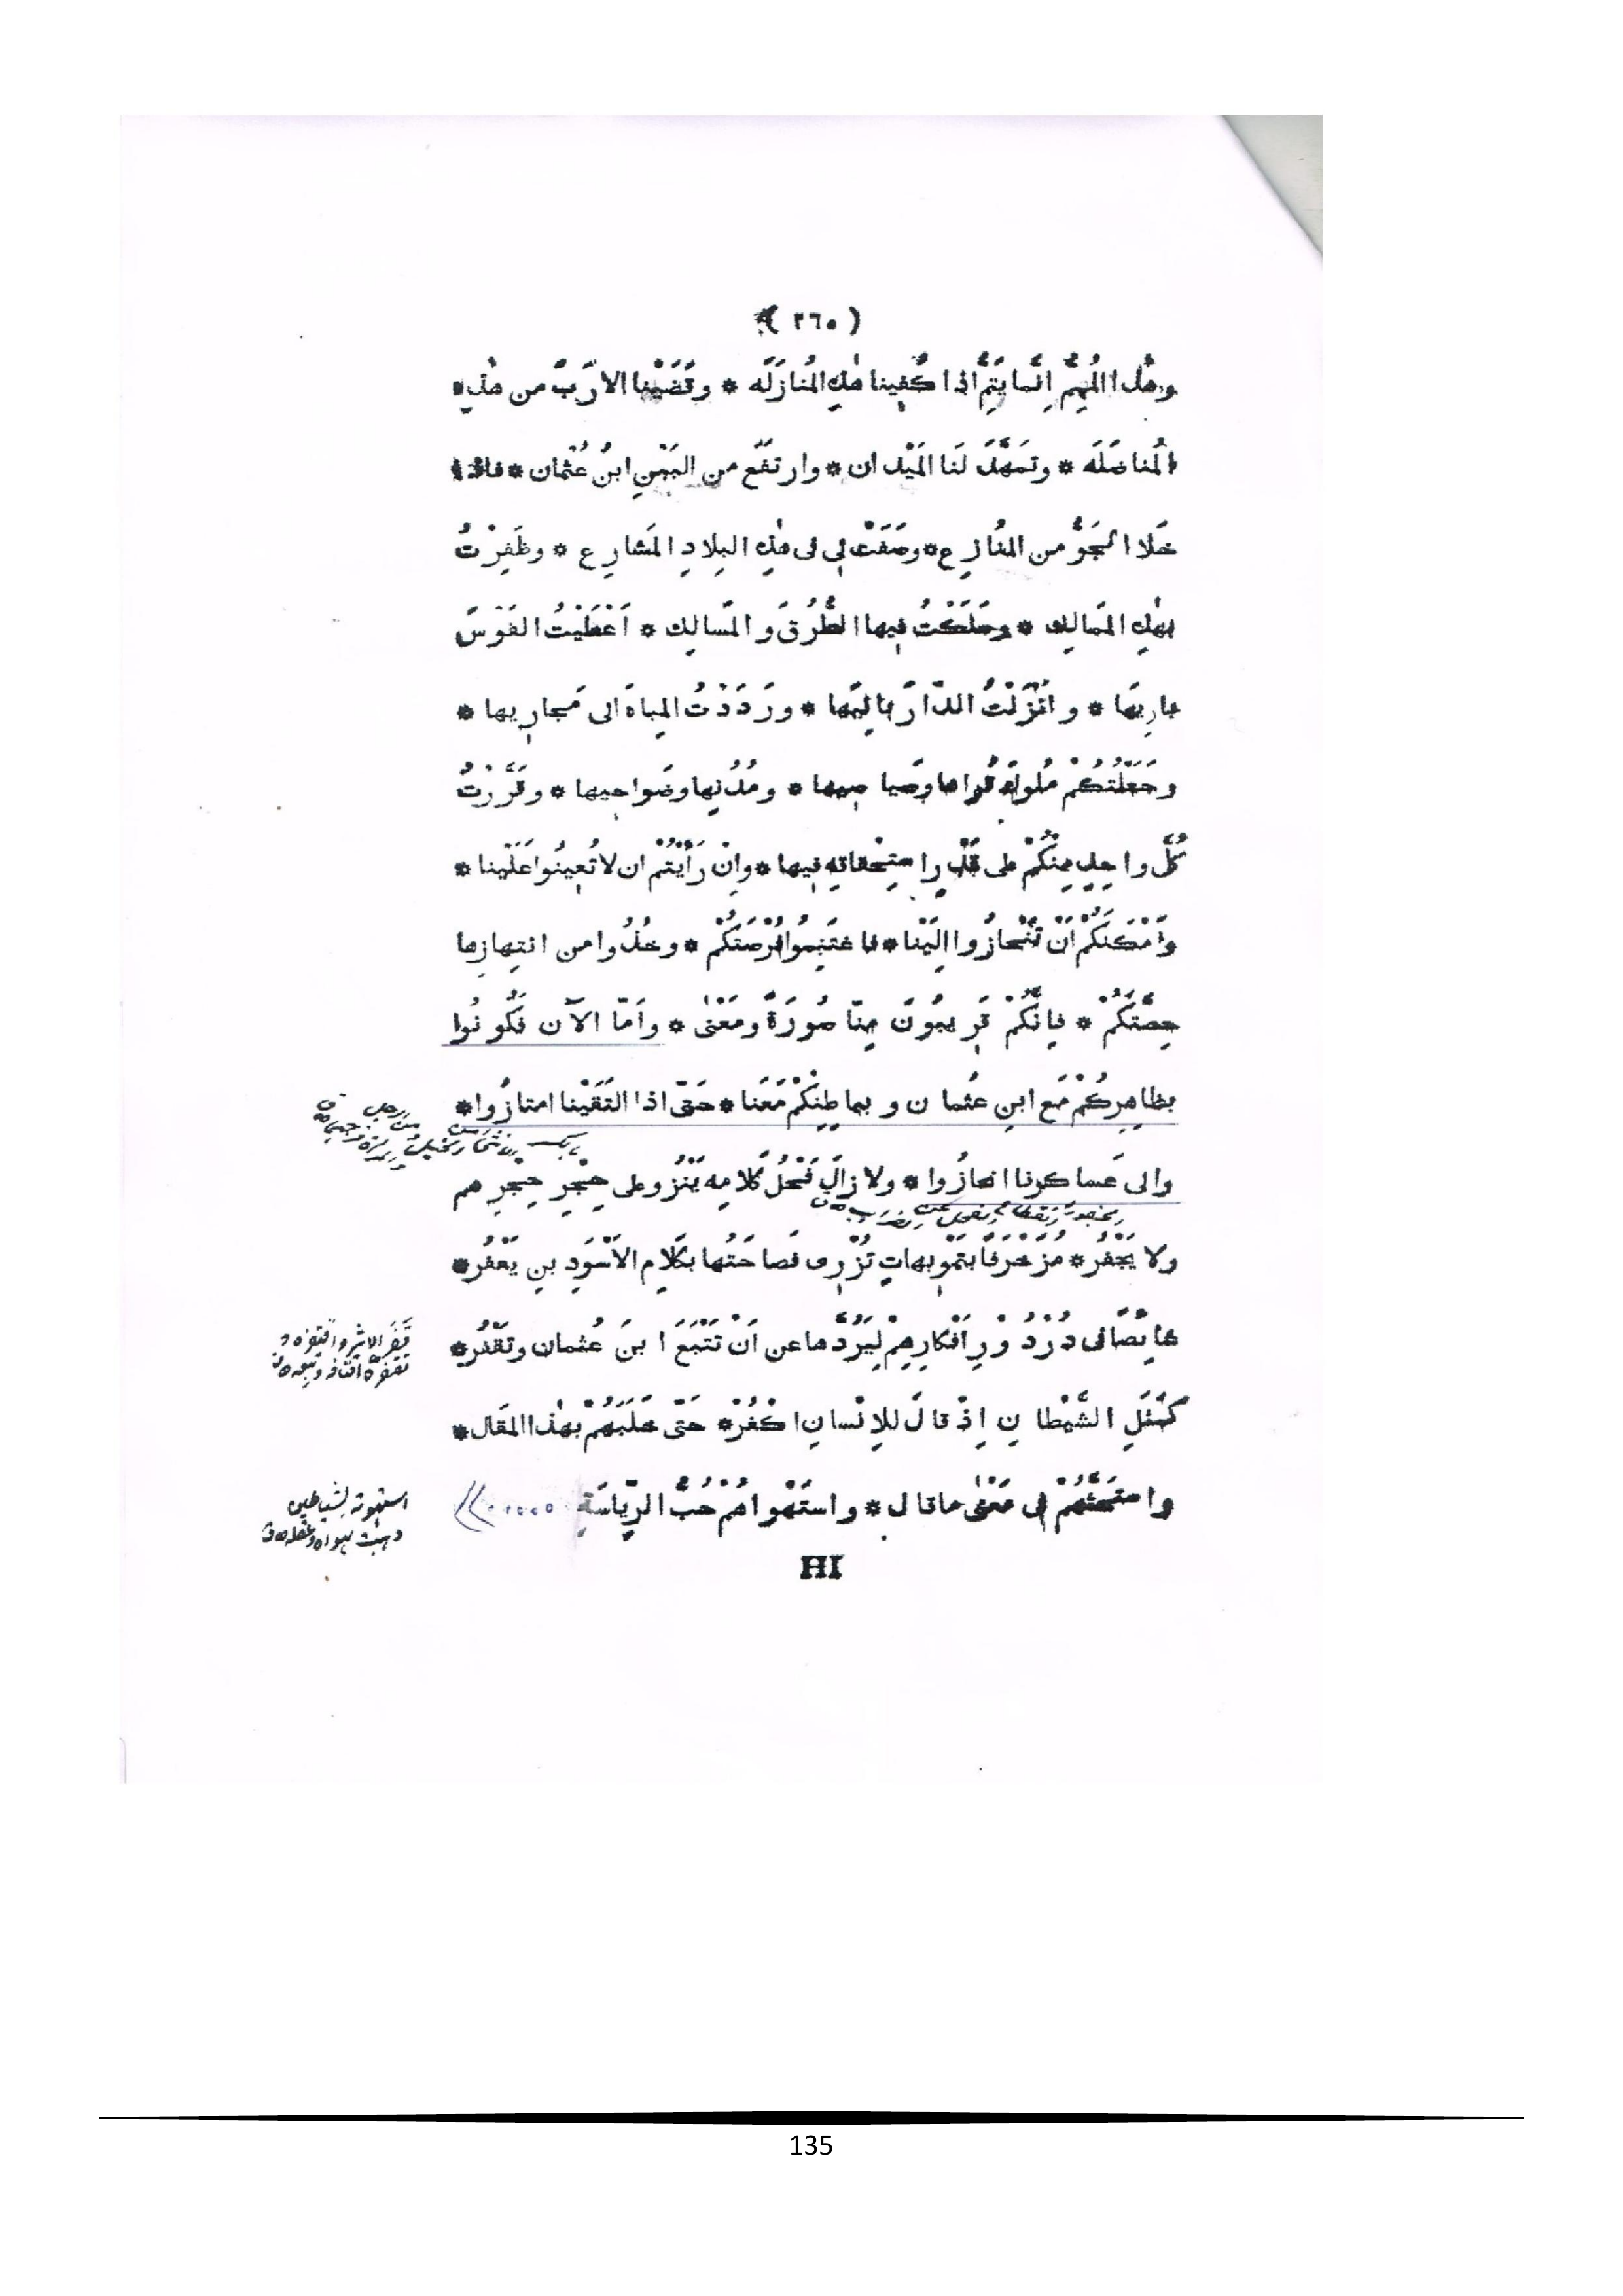 ( ٢٦٠ )
وهذا المُهِمُّ اِنَّما يَتِمُّ اذا كُفِينا هٰذِهِ المُنازَلَه * وقَضَيْنا الاَرَبَ من هٰذِه
المُناضَلَه * وتَمَهَّدَ لَنا المَيْدان * وارتَفَعَ من البَيْنِ ابنُ عُثمان * فاذا
خَلا الجَوُّ من المُنازِع * وصَفَت لِي فى هٰذِهِ البِلادِ المَشارِع * وظَفِرْتُ
بهٰذِهِ المَمالِك * وسَلَكْتُ فيها الطُّرُقَ والمَسالِك * اَعْطَيْتُ القَوْسَ
بارِيَها * وانْزَلْتُ الدّارَ بانِيَها * ورَدَدْتُ المِياهَ الى مَجارِيها *
وجَعَلْتُكُمْ مُلوكَ قُراها وصَياصِيها * ومُدُنِها وضَواحِيها * وقَرَّرْتُ
كُلَّ واحِدٍ مِنْكُمْ على قَدْرِ استِحْقاقِهِ فيها * وانْ رَأَيْتُمْ ان لا تُعِينُوا عَلَيْنا *
واَمْكَنَكُمْ اَنْ تَنْحازُوا اِلَيْنا * فاغتَنِمُوا فُرْصَتَكُمْ * وخُذُوا من انتِهازِها
حِصَّتَكُمْ * فاِنَّكُمْ قَرِيبُونَ مِنّا صُورَةً ومَعْنٰى * واَمّا الآن فَكُونُوا
بظاهِرِكُمْ مَع ابنِ عُثمان وبباطِنِكُمْ مَعَنا * حَتّى اذا التَقَيْنا امتازُوا *
والى عَساكرنا انحازُوا * ولا زال فَحْلُ كَلامِه يَنْزُو على حِجْرِ حِجْرِهم
ولا يَجْفُر * مُزَخْرَفًا بتَمْوِيهاتٍ تُزْرِى فَصاحَتُها بكَلامِ الاَسْوَدِ بنِ يَعْفُر *
اَفْكارِهِمْ لِيَرُدَّها عن اَنْ تَتْبَعَ ابنَ عُثمان وتَقْفُر *
كَمَثَلِ الشَّيْطانِ اِذْ قالَ للاِنْسانِ اكْفُرْ * حَتّى خَلَبَهُمْ بهٰذا المَقال *
واستَهْواهُمْ حُبُّ الرِّياسَةِ
قَفَر الاثر واقتفره و
تقفره اقتفاه وتبعه ق
استهوته الشياطين
ذهبت بهواه وعقله ق
HI
135